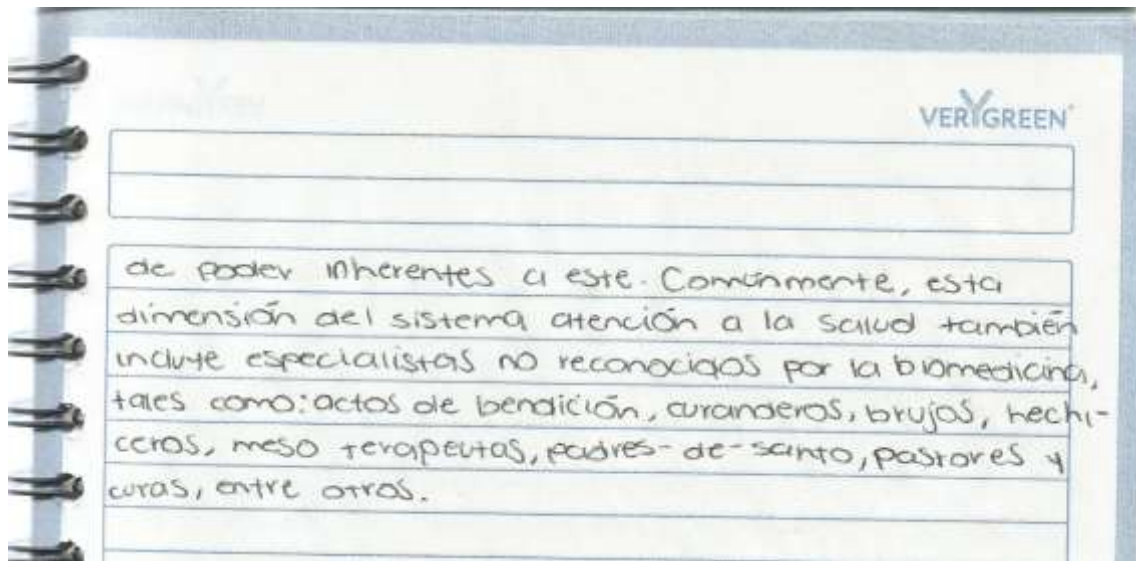 VERYGREEN
de poder inherentes a este. Comúnmente, esta
dimensión del sistema atención a la salud también
incluye especialistas no reconocidos por la biomedicina,
tales como: actos de bendición, curanderos, brujos, hechi-
ceros, meso terapeutas, padres-de-santo, pastores y
curas, entre otros.